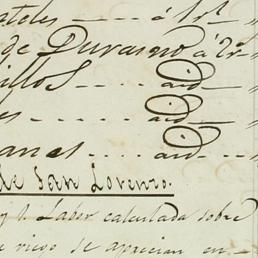 ateles ---- á 1 rl „
de Durasno á 2 rs „
illos ---- aid „
es ---- aid „
anes ---- aid „
de San Lorenzo.
y l. Labor calculada sobre
e riego de aprecian en